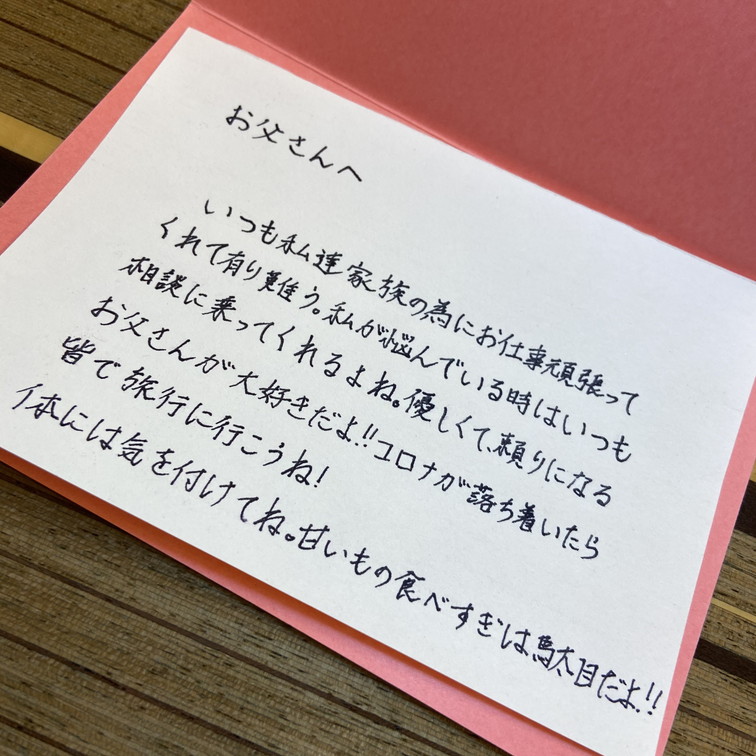 お父さんへ
いつも私達家族の為にお仕事頑張って
くれて有り難う。私が悩んでいる時はいつも
相談に乗ってくれるよね。優しくて、頼りになる
お父さんが大好きだよ!!コロナが落ち着いたら
皆で旅行に行こうね!
体には気を付けてね。甘いもの食べすぎは駄目だよ!!